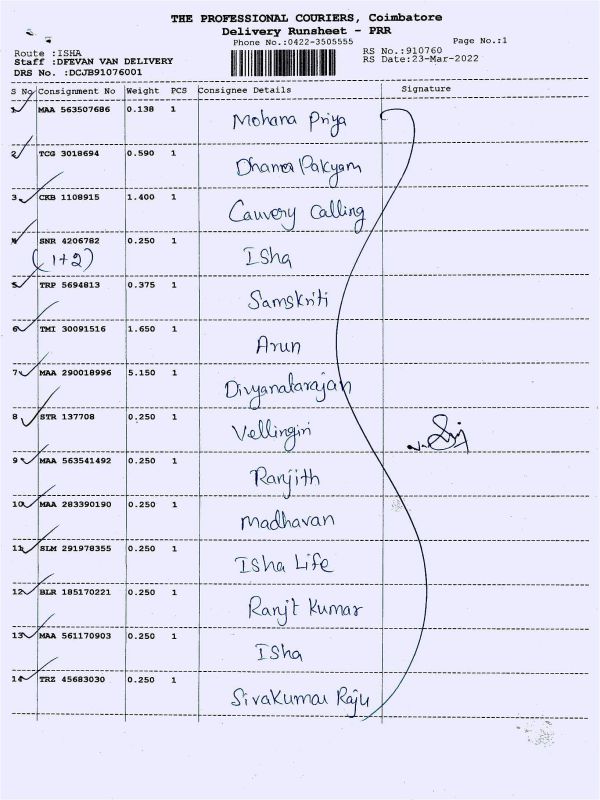 THE PROFESSIONAL COURIERS, Coimbatore
Delivery Runsheet - PRR
Phone No.:0422-3505555 Page No.:1
Route :ISHA RS No.:910760
Staff :DFEVAN VAN DELIVERY RS Date:23-Mar-2022
DRS No. :DCJB91076001
S No Consignment No Weight PCS Consignee Details Signature
1 MAA 563507686 0.138 1 Mohana Priya
2 TCG 3018694 0.590 1 Dhana Pakyam
3 CKB 1108915 1.400 1 Cauvery Calling
4 SNR 4206782 0.250 1 Isha
(1+2)
5 TRP 5694813 0.375 1 Samskriti
6 TMI 30091516 1.650 1 Arun
7 MAA 290018996 5.150 1 Divyanatarajan
8 STR 137708 0.250 1 Vellingiri
9 MAA 563541492 0.250 1 Ranjith
10 MAA 283390190 0.250 1 Madhavan
11 SLM 291978355 0.250 1 Isha Life
12 BLR 185170221 0.250 1 Ranjit Kumar
13 MAA 561170903 0.250 1 Isha
14 TRZ 45683030 0.250 1 SivaKumar Raju